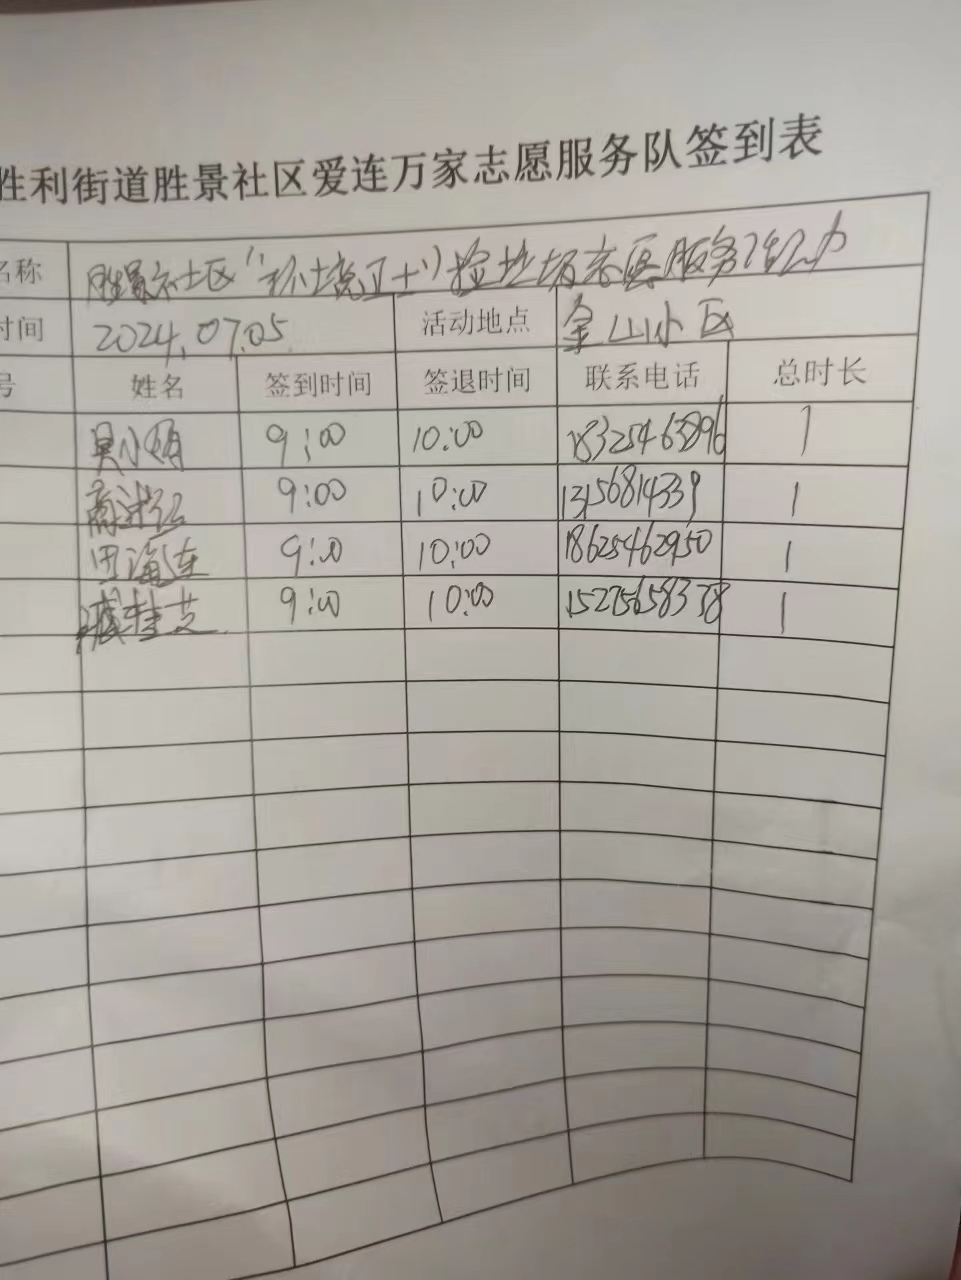 胜利街道胜景社区爱连万家志愿服务队签到表
名称 胜景社区“环境卫士”捡垃圾志愿服务活动
时间 2024.07.05 活动地点 金山小区
号 姓名 签到时间 签退时间 联系电话 总时长
吴小娟 9:00 10:00 18325463896 1
9:00 10:00 13156814339 1
田海连 9:00 10:00 18625462950 1
臧桂芝 9:00 10:00 15275658338 1